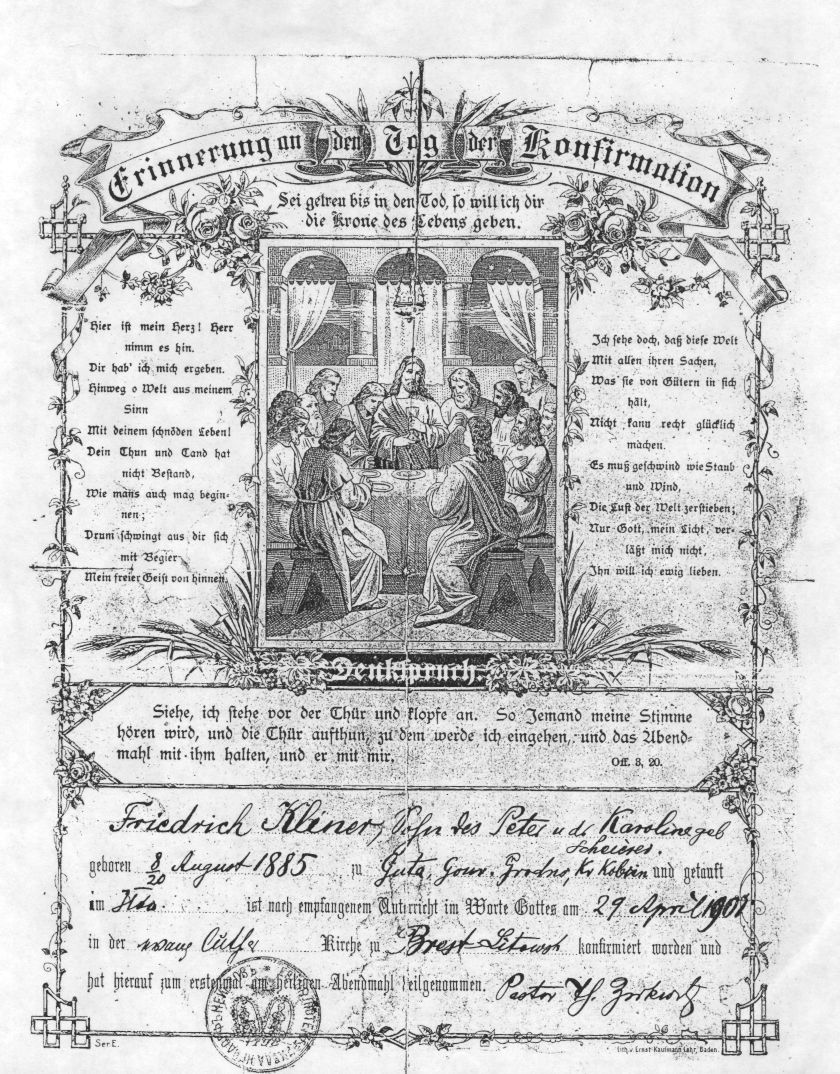 Erinnerung an den Tag der Konfirmation
Sei getreu bis in den Tod, so will ich dir
die Krone des Lebens geben.
Hier ist mein Herz! Herr
nimm es hin.
Dir hab' ich mich ergeben.
Hinweg o Welt aus meinem
Sinn
Mit deinem schnöden Leben!
Dein Thun und Tand hat
nicht Bestand,
Wie mans auch mag begin-
nen;
Drum schwingt aus dir sich
mit Begier
Mein freier Geist von hinnen.
Ich sehe doch, daß diese Welt
Mit allen ihren Sachen,
Was sie von Gütern in sich
hält,
Nicht kann recht glücklich
machen.
Es muß geschwind wie Staub
und Wind,
Die Lust der Welt zerstieben;
Nur Gott, mein Licht, ver-
läßt mich nicht,
Ihn will ich ewig lieben.
Denkspruch.
Siehe, ich stehe vor der Thür und klopfe an. So Jemand meine Stimme
hören wird, und die Thür aufthun, zu dem werde ich eingehen, und das Abend-
mahl mit ihm halten, und er mit mir.
Off. 3, 20.
Friedrich Kliner, Sohn des Peter u. d. Karoline geb
geboren 8/20 August 1885 zu Guta, Gouv. Grodno, Kr Kobrin und getauft
im ist nach empfangenem Unterricht im Worte Gottes am 29 April 1901
in der evang luth Kirche zu Brest-Litowsk konfirmiert worden und
hat hierauf zum erstenmal am heiligen Abendmahl teilgenommen. Pastor
Ser E.
Lith. v. Ernst Kaufmann Lahr, Baden.